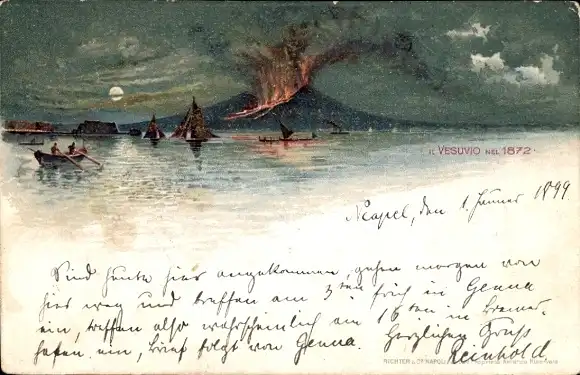 IL VESUVIO NEL 1872.
Neapel, den 1. Januar 1899
Sind heute hier angekommen, gehen morgen von
hier weg und treffen am 3ten früh in Genua
ein, treffen also wahrscheinlich am 16ten in Bremer-
hafen ein, Brief folgt von Genua. Herzlichen Gruss
Reinhold.
RICHTER & Co NAPOLI